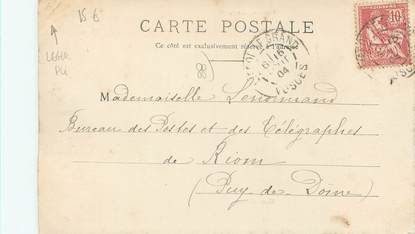 15 €
LEGER
PLI
88
CARTE POSTALE
Ce côté est exclusivement réservé à l'adresse
GRAND
04
VOSGES
10
Mademoiselle Lenormand
Bureau des Postes et des Télégraphes
de Riom
(Puy de Dôme)